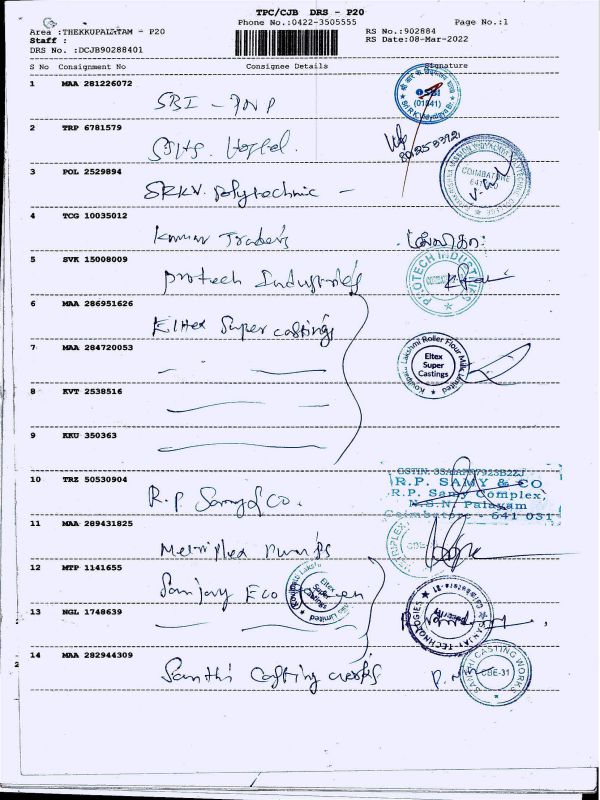 TPC/CJB DRS - P20
Phone No.:0422-3505555 Page No.:1
Area :THEKKUPALATAM - P20 RS No.:902884
Staff : RS Date:08-Mar-2022
DRS No. :DCJB90288401
S No Consignment No Consignee Details Signature
1 MAA 281226072 SBI -
SBI
(01841)
2 TRP 6781579
3 POL 2529894 SRKV. Polytechnic -
COIMBATORE
4 TCG 10035012 Kumar Traders
5 SVK 15008009 Protech Industries
PROTECH INDUSTRIES
6 MAA 286951626 Eltex Super castings
7 MAA 284720053
Kovilpatti Lakshmi Roller Flour Mills Limited
Eltex
Super
Castings
8 KVT 2538516
9 KKU 350363
10 TRZ 50530904 R.P Samy & Co.
R.P. SAMY & CO
R.P. Samy Complex,
N.S.N. Palayam
Coimbatore - 641 031
11 MAA 289431825 Metriplex Pumps
12 MTP 1141655 Sanjay Eco
Eltex
Super
Castings
13 NGL 1748639
SANJAY TECHNOLOGIES
14 MAA 282944309 Santhi Casting works
SANTHI CASTING WORKS
CBE-31